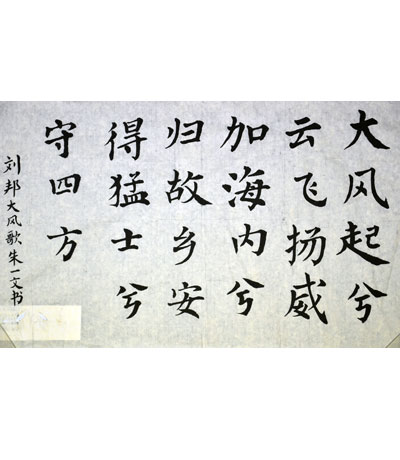 大风起兮
云飞扬威
加海内兮
归故乡安
得猛士兮
守四方
刘邦大风歌朱一文书